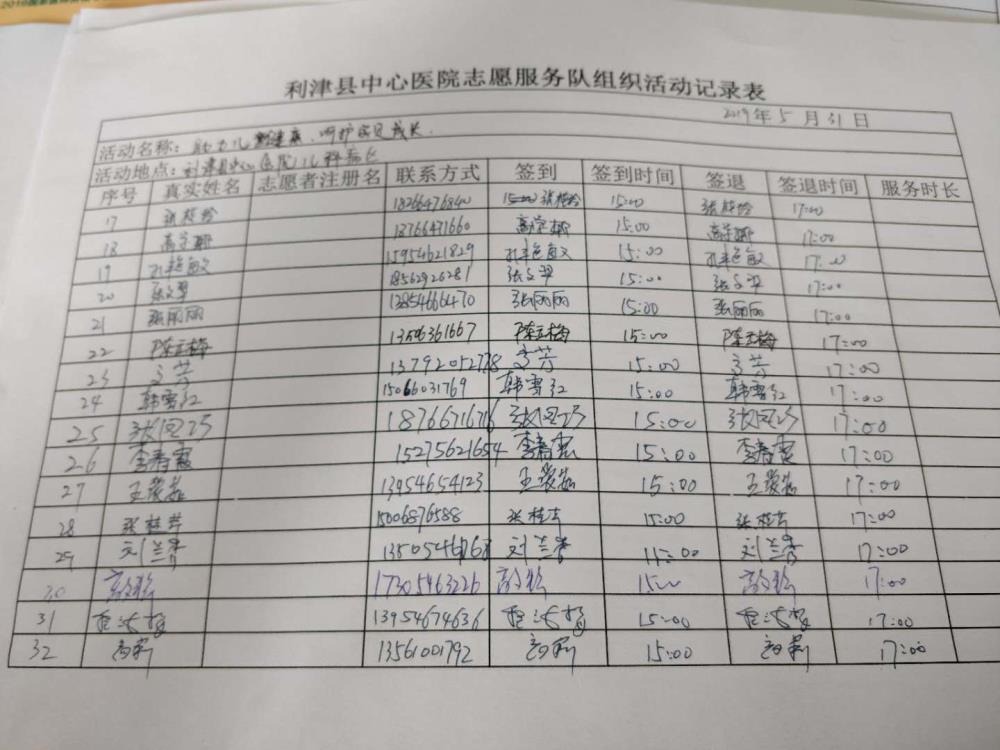 利津县中心医院志愿服务队组织活动记录表
2019年5月31日
活动名称: 助力儿童健康,呵护宝贝成长.
活动地点: 利津县中心医院儿科
序号 真实姓名 志愿者注册名 联系方式 签到 签到时间 签退 签退时间 服务时长
17 张桂玲 18266476840 张桂玲 15:00 张桂玲 17:00
18 13766471660 15:00 17:00
19 孔艳敏 15954621829 孔艳敏 15:00 孔艳敏 17:00
20 张文翠 18562926281 张文翠 15:00 张文翠 17:00
21 张丽丽 13854666470 张丽丽 15:00 张丽丽 17:00
22 陈立梅 13546361667 陈立梅 15:00 陈立梅 17:00
23 13792052778 15:00 17:00
24 韩雪红 15066031769 韩雪红 15:00 韩雪红 17:00
25 18766716716 15:00 17:00
26 李春霞 15275621654 李春霞 15:00 李春霞 17:00
27 13954654123 15:00 17:00
28 张桂芹 15006876588 张桂芹 15:00 张桂芹 17:00
29 刘兰香 刘兰香 刘兰香 17:00
30 17305463226 17:00
31 13954674636 15:00 17:00
32 13561001792 15:00 17:00